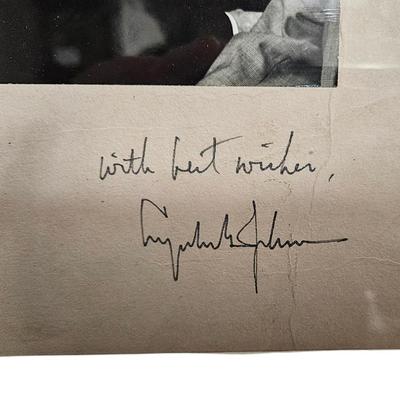 with best wishes,
Lyndon B Johnson